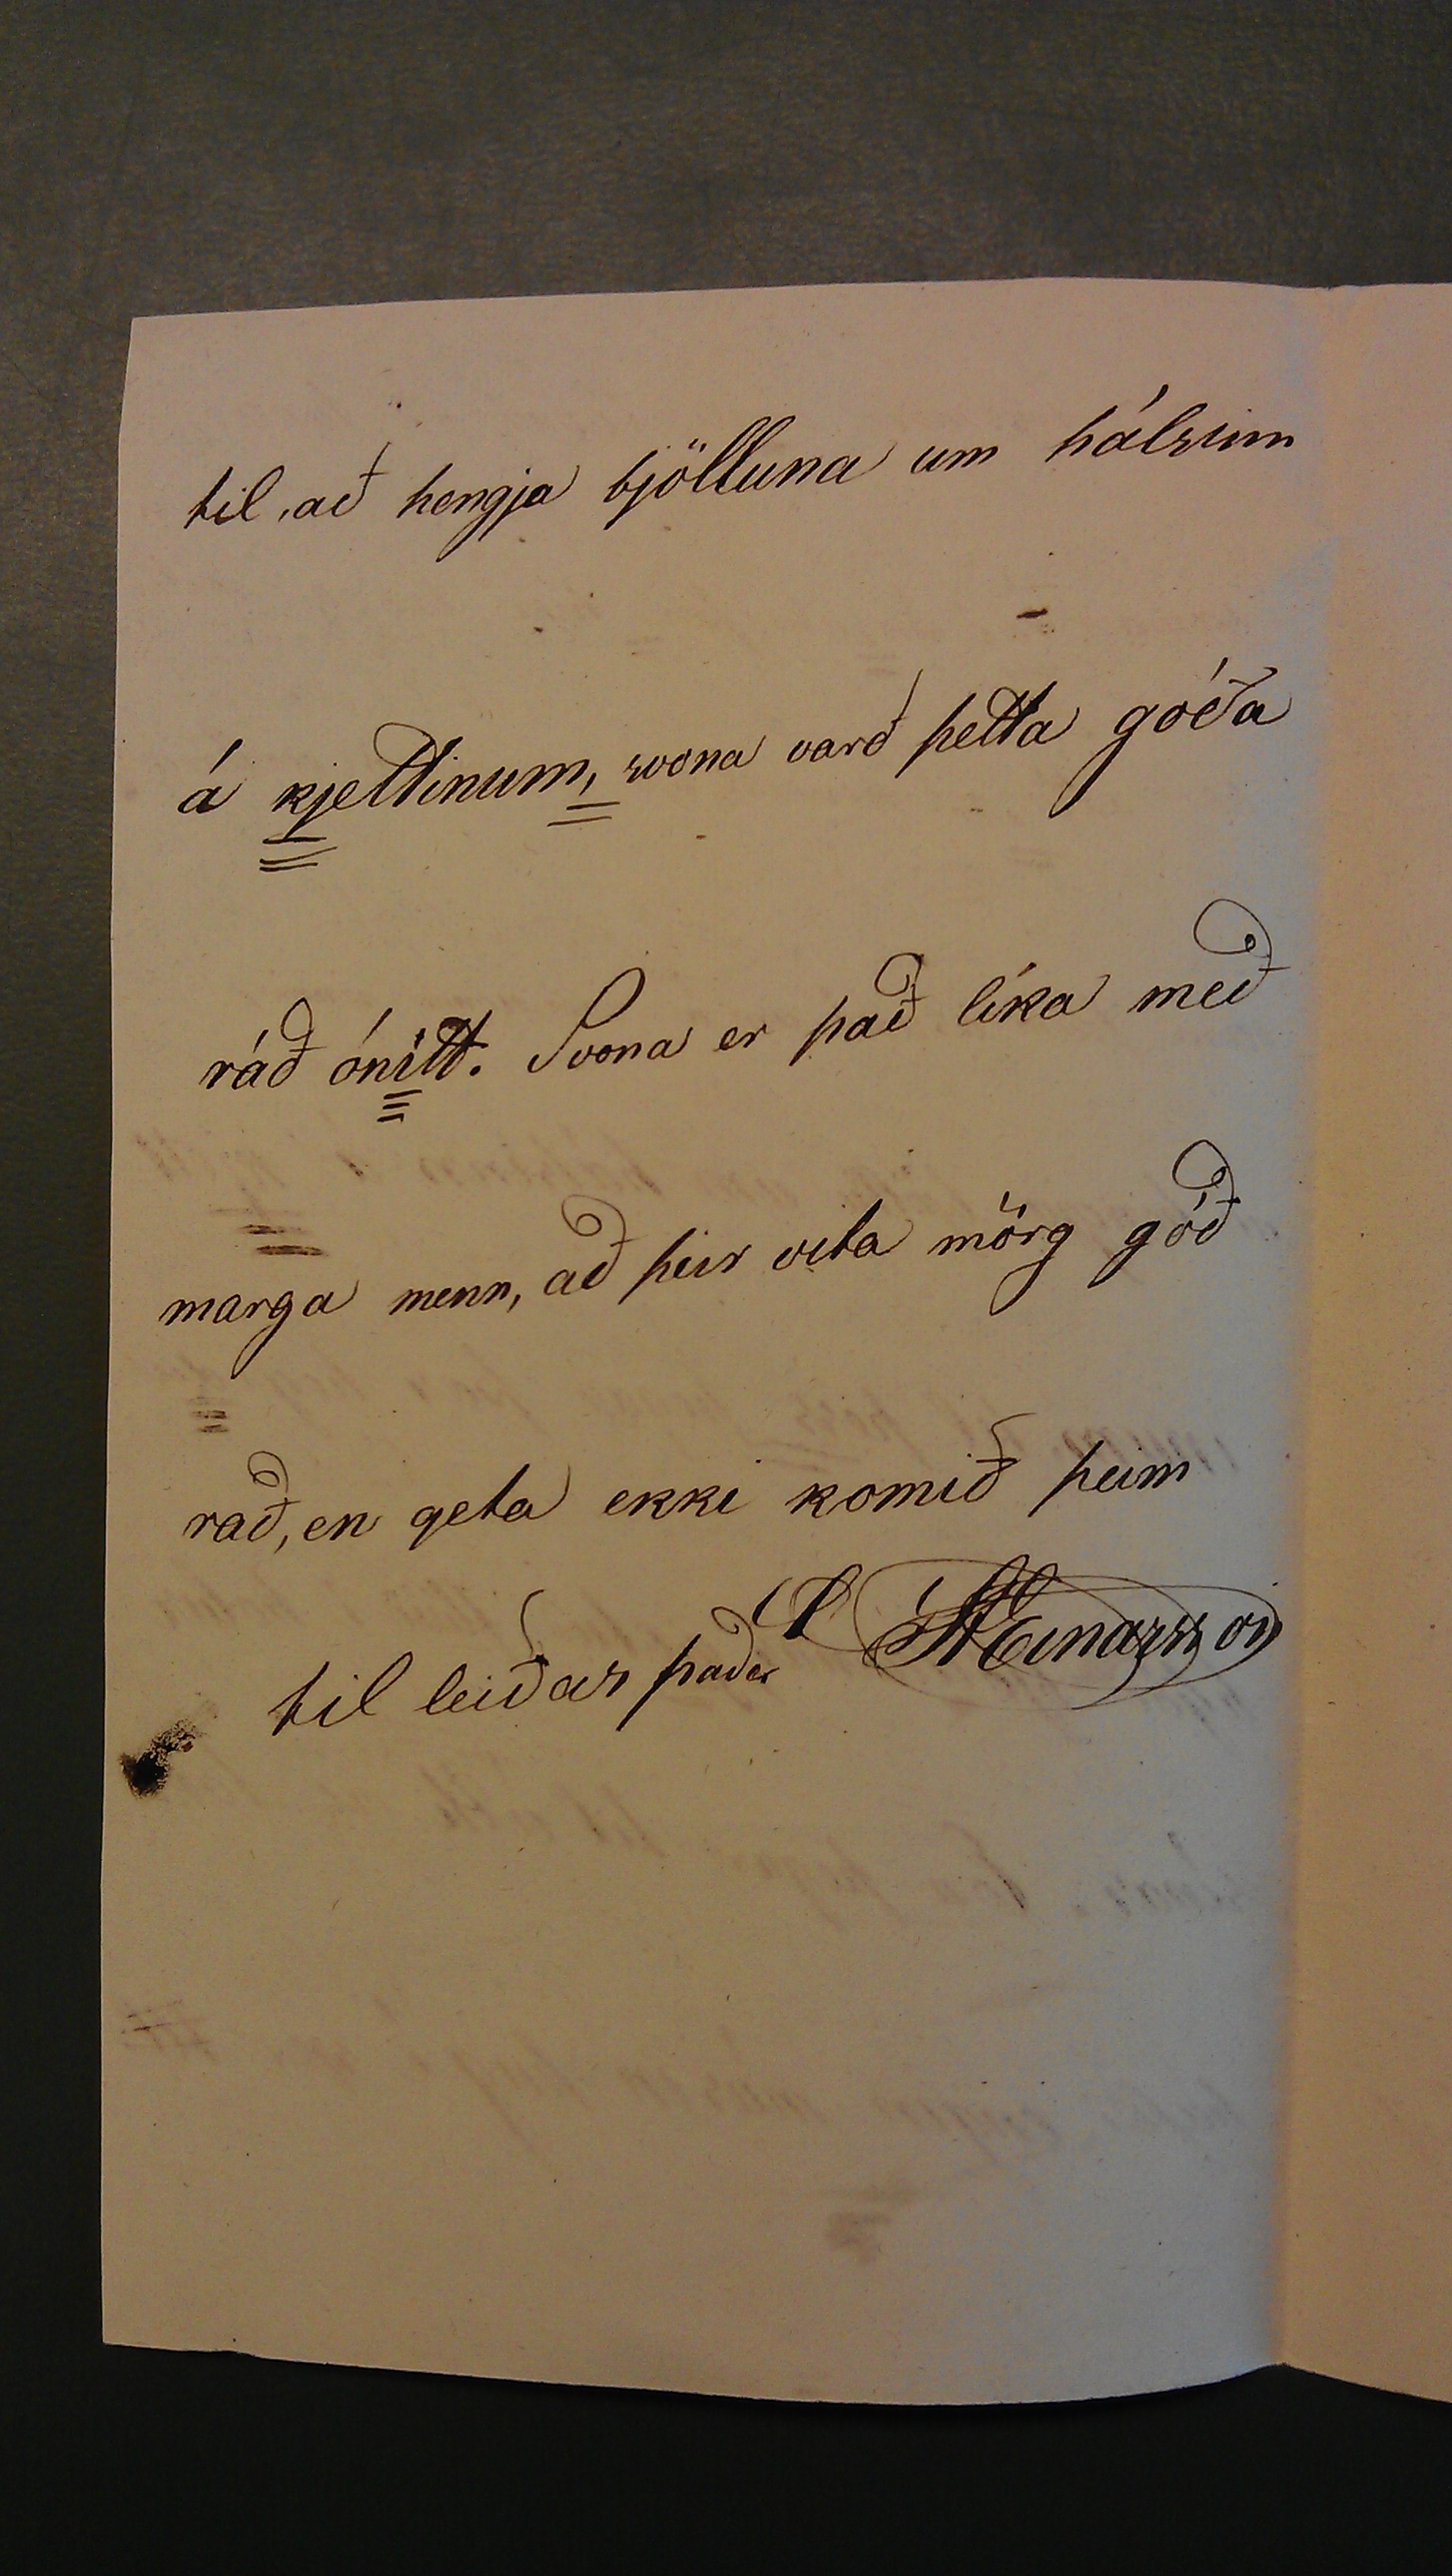 til, að hengja bjölluna um hálsinn
á kjettinum, svona varð þetta góða
ráð ónítt. Svona er það líka með
marga menn, að þeir vita mörg góð
rað, en geta ekki komið þeim
til leiðar það er
Einarsson